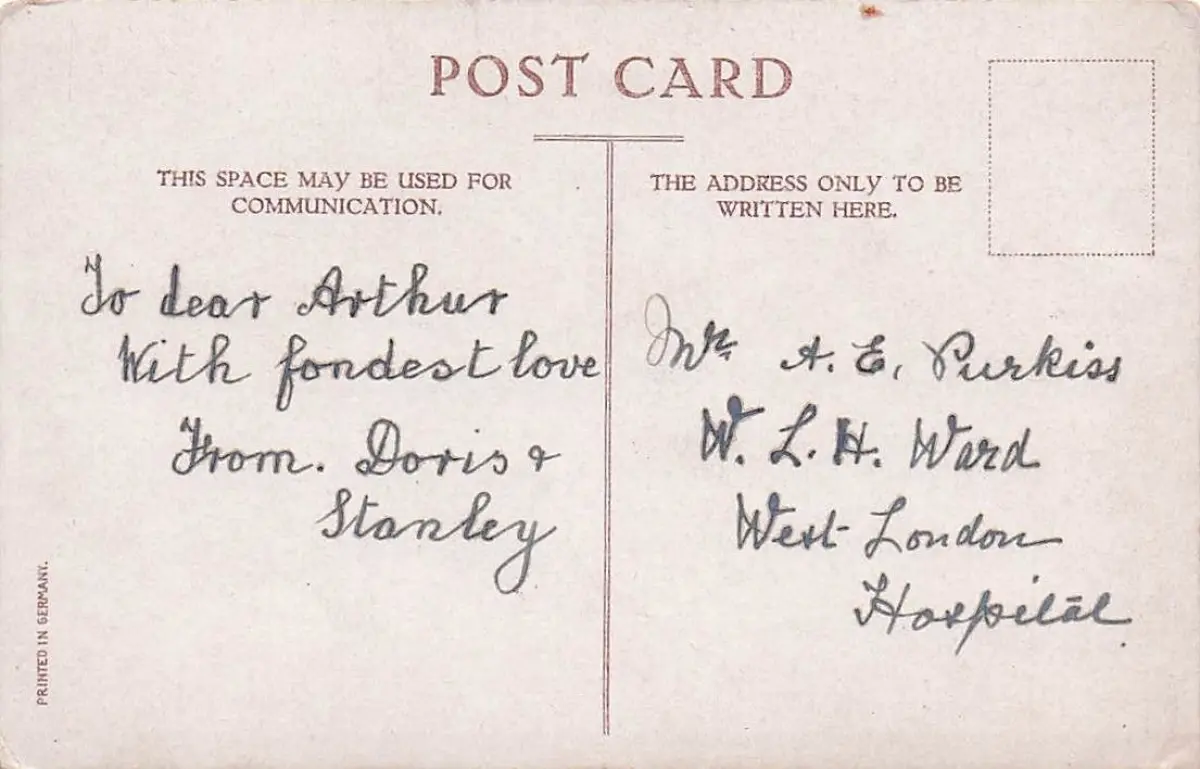 POST CARD
THIS SPACE MAY BE USED FOR
COMMUNICATION.
To dear Arthur
With fondest love
From. Doris &
Stanley
THE ADDRESS ONLY TO BE
WRITTEN HERE.
Mr. A. E. Purkiss
W. L. H. Ward
West London
Hospital
PRINTED IN GERMANY.